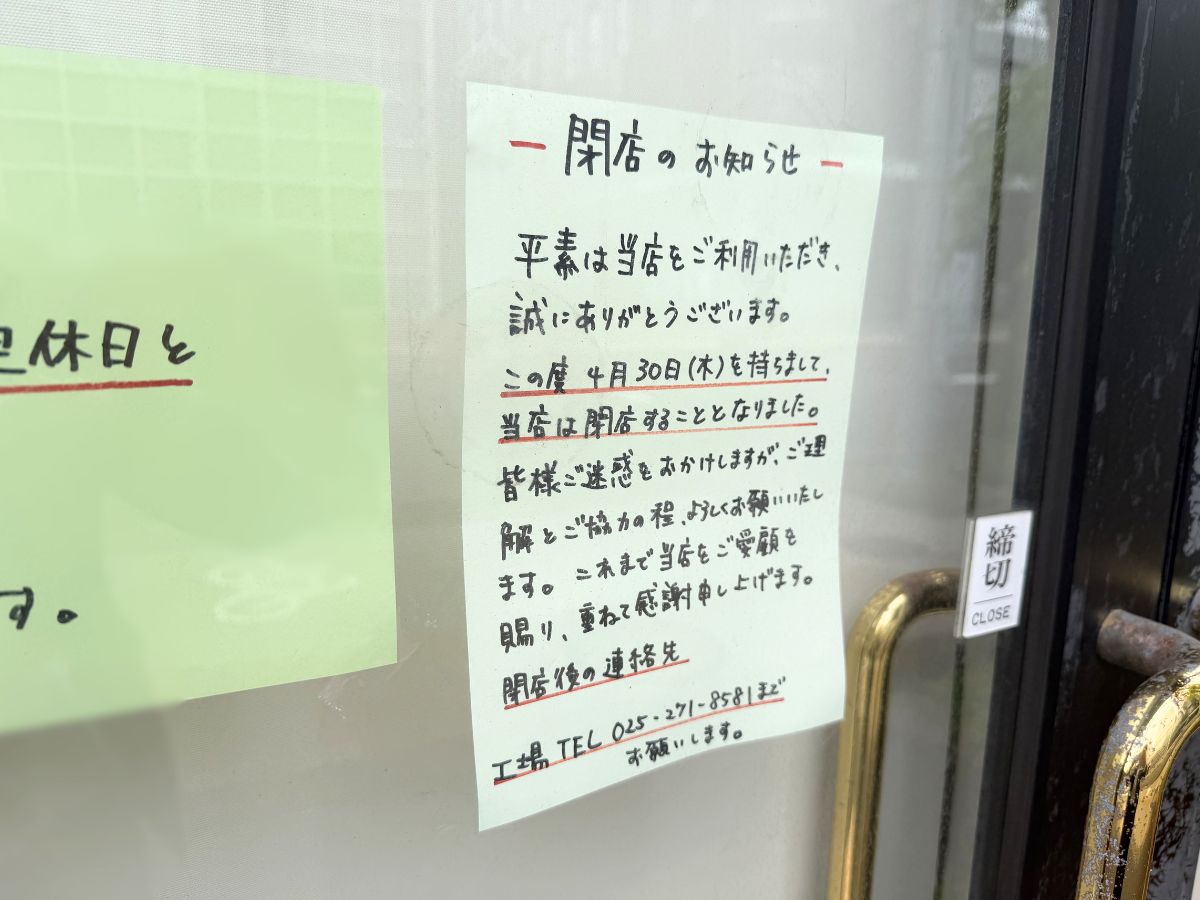 休日と
す。
ー 閉店のお知らせ ー
平素は当店をご利用いただき、
誠にありがとうございます。
この度 4月30日(木)を持ちまして、
当店は閉店することとなりました。
皆様ご迷惑をおかけしますが、ご理
解とご協力の程、よろしくお願いいたし
ます。これまで当店をご愛顧を
賜り、重ねて感謝申し上げます。
閉店後の連絡先
工場 TEL 025-271-8581まで
お願いします。
締切
CLOSE